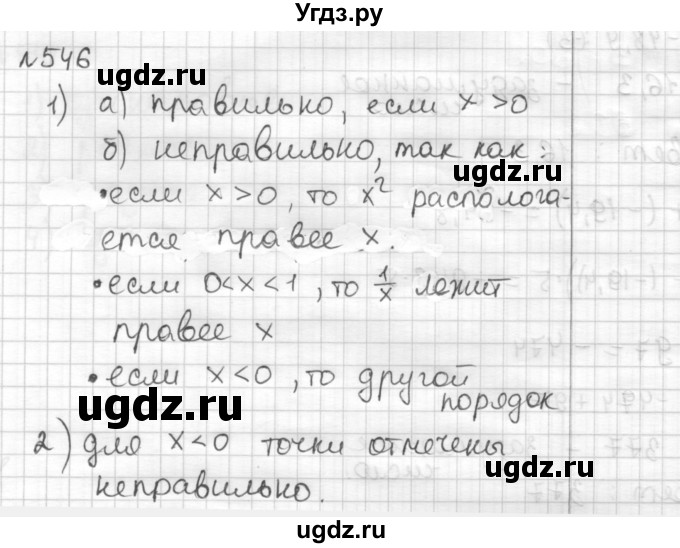 Угдз.ру
№546
1) а) правильно, если x > 0
б) неправильно, так как :
• если x > 0, то x² распологa-
ется правее x.
• если 0 < x < 1, то 1/x лежит
правее x
• если x < 0, то другой
порядок
2) для x < 0 точки отмечены
неправильно.
ugdz.ru
ugdz.ru
ugdz.ru
ugdz.ru
ugdz.ru